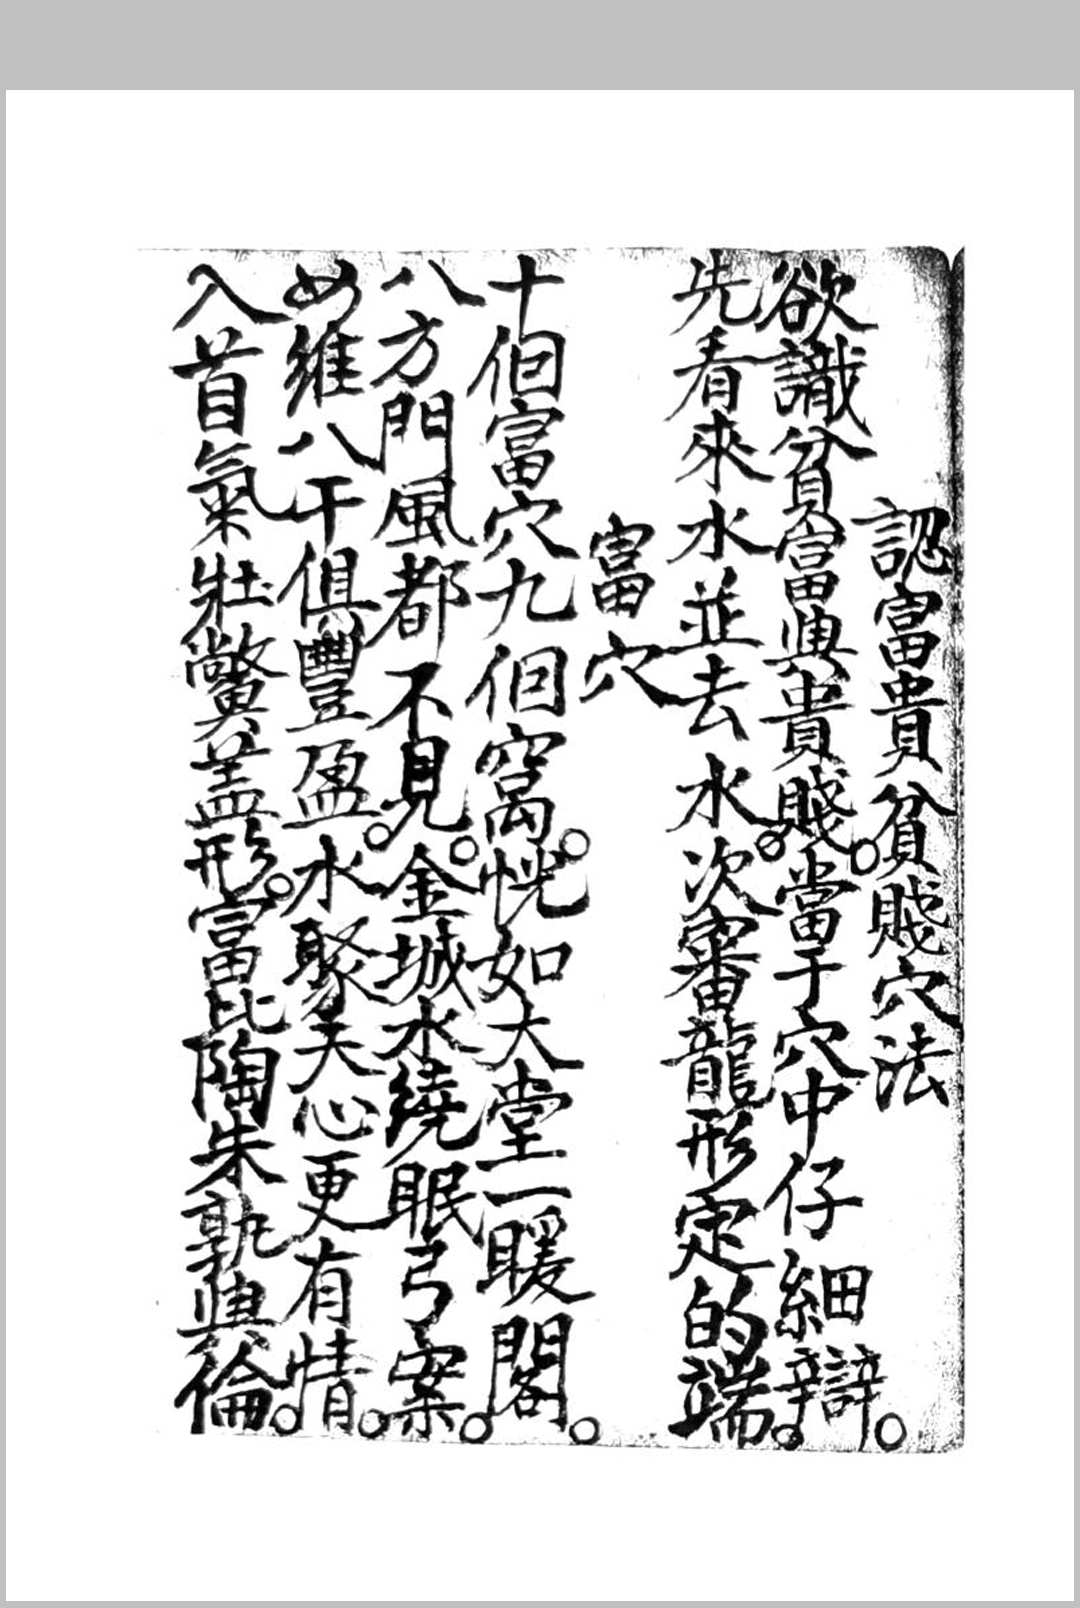 認富貴貧賤穴法
欲識貧富與貴賤。當于穴中仔細辯。
先看來水並去水。次審龍形定的端。
富穴
十個富穴九個窩。恍如大堂一暖閣。
八方門風都不見。金城水繞眠弓案。
四維八干俱豐盈。水聚天心更有情。
入首氣壯鱉蓋形。富比陶朱孰與倫。